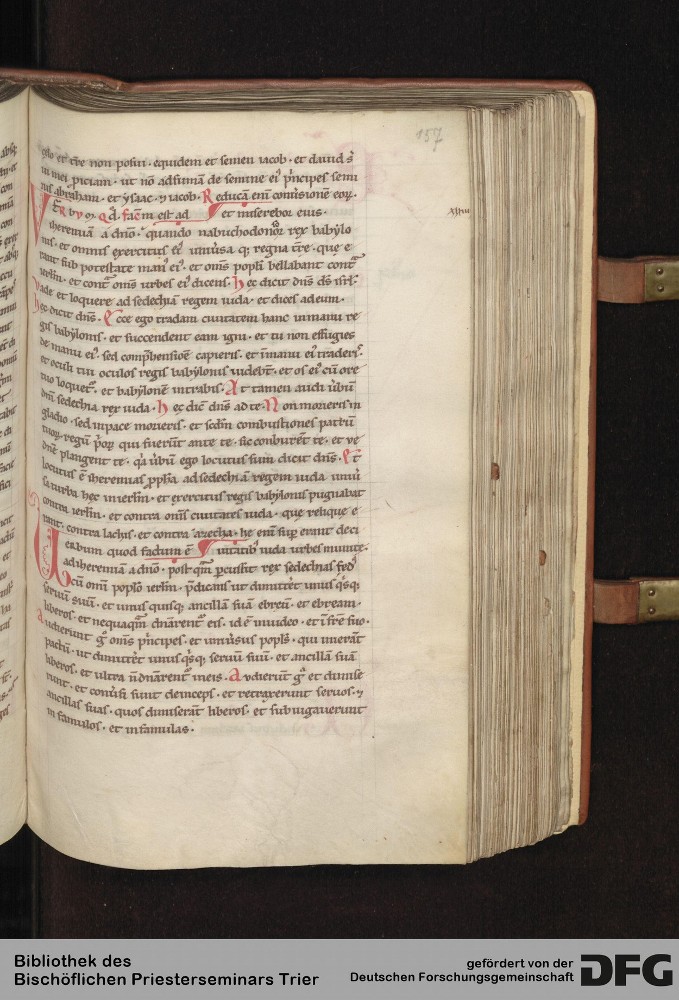 157
celo et tr̄e non posui · equidem et semen iacob · et dauid s̄
ui mei ꝓiciam · ut nō adsumā de semine ei⁹ p̄ncipes semi
nis abraham · et ysaac · ⁊ iacob · Reducā eni ̄ conu̓sionē eoꝝ ·
et miserebor eius ·
VERBVM Qḋ facm̄ est ad
xxxiiii
iheremiā a dn̄o · quando nabuchodonosor rex babylo
nis · et omnis exercitus ei⁹ uniu̓sa q; regna tr̄e · que e
rant sub potestate man⁹ ei⁹ · et om̄s popl̄i bellabant cont̄
ierlm̄ · et cont̄ om̄s urbes ei⁹ dicens · Hec dicit dn̄s ds̄ isrl̄ ·
Vade et loquere ad sedechiā regem iuda · et dices ad eum ·
Hec dicit dn̄s · Ecce ego tradam ciuitatem hanc in manu re
gis babylonis · et succendent eam igni · et tu non effugies
de manu ei⁹ · sed comp̄hensiōe capieris · et in manu ei⁹ trader̓ ·
et oculi tui oculos regis babylonis uidebn̄t · et os ei⁹ cū ore
tuo loquet̄ · et babylonē intrabis · At tamen audi u̓bū
dn̄i sedechia rex iuda · Hec dic̄ dn̄s ad te · Non morieris in
gladio · sed in pace morieris · et scdm̄ combustiones patrū
tuoꝝ regū p̓oꝝ qui fuerūt ante te · sic conburēt te · et ve
dn̄e plangent te · q̓a u̓bū ego locutus sum dicit dn̄s · Et
locutus ē iheremias ꝓph̄a ad sedechiā regem iuda uniu̓
sa u̓ba hec in ierlm̄ · et exercitus regis babylonis pugnabāt
contra ierlm̄ · et contra om̄s ciuitates iuda · que reliquę e
rant · contra lachis · et contra azecha · he eni ̄ sup̄erant de ci
uitatib⁹ iuda urbes munite ·
Verbum quod factum ē
ad iheremiā a dn̄o · postqm̄ pcussit rex sedechias fed⁹
cū omi ̄ popl̄o ierlm̄ · p̄dicans ut dimittēt unus q̓sq;
seruū suū · et unus quisq; ancillā suā ebreū · et ebream ·
liberos · et nequaqm̄ dn̄arent̄ eis · id ē in iudeo · et in fr̄e suo ·
Audierunt g⁰ om̄s p̓ncipes · et uniu̓sus popl̄s · qui inierāt
pactū · ut dimittēt unus q̓sq; seruū suū · et ancillā suā
liberos · et ultra n̄ dn̄arent̄ in eis · Audierūt g̓ et dimise
runt · et conu̓si sunt deinceps · et retraxerunt seruos · ⁊
ancillas suas · quos dimiserāt liberos · et subiugauerunt
in famulos · et in famulas ·
Bibliothek des
Bischöflichen Priesterseminars Trier
gefördert von der
Deutschen Forschungsgemeinschaft
DFG